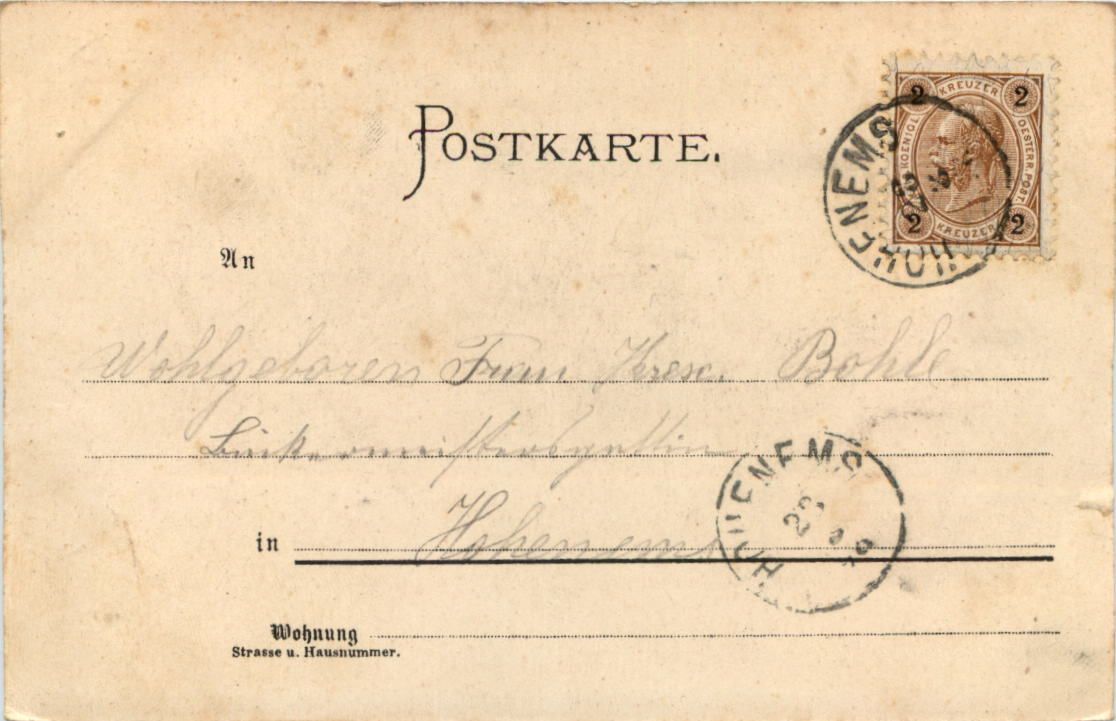 POSTKARTE.
2 KREUZER 2
KOENIGL OESTERR. POST.
2 KREUZER 2
HOHENEMS
An
Wohlgeboren Frau Kresz. Bohle
Bäckermeistersgattin
HOHENEMS
in Hohenems
Wohnung
Strasse u. Hausnummer.